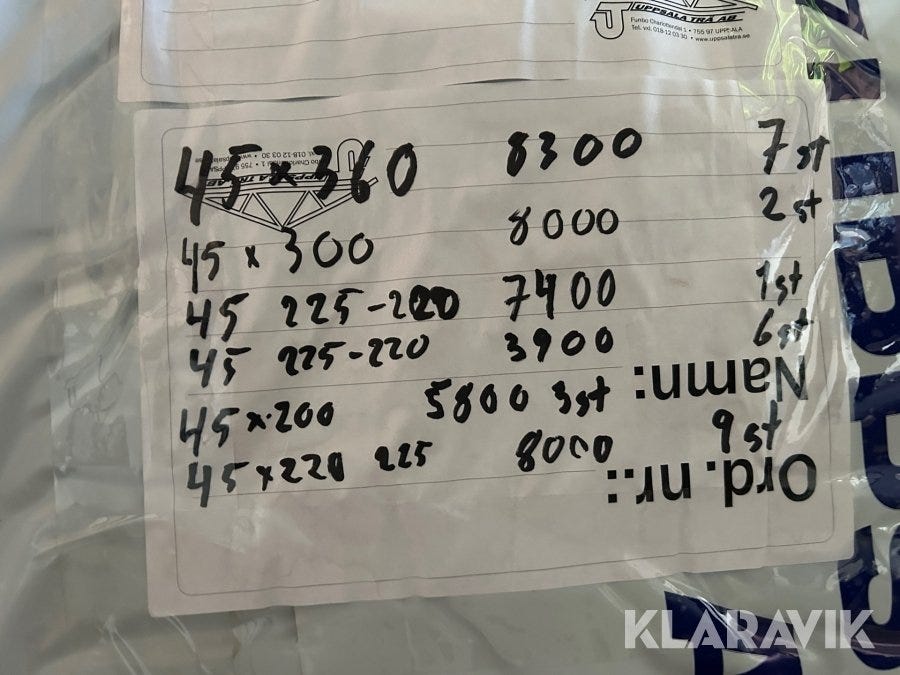 UPPSALA TRÄ AB
Funbo Charlottendal 1 • 755 97 UPPSALA
Tel. vxl. 018-12 03 30 • www.uppsalatra.se
45 x 360 8300 7 st
45 x 300 8000 2 st
45 225-220 7400 1 st
45 225-220 3900 6 st
45 x 200 5800 3 st
45 x 220 225 8000 9 st
Namn:
Ord.nr.:
UPPSALA TRÄ AB
KLARAVIK